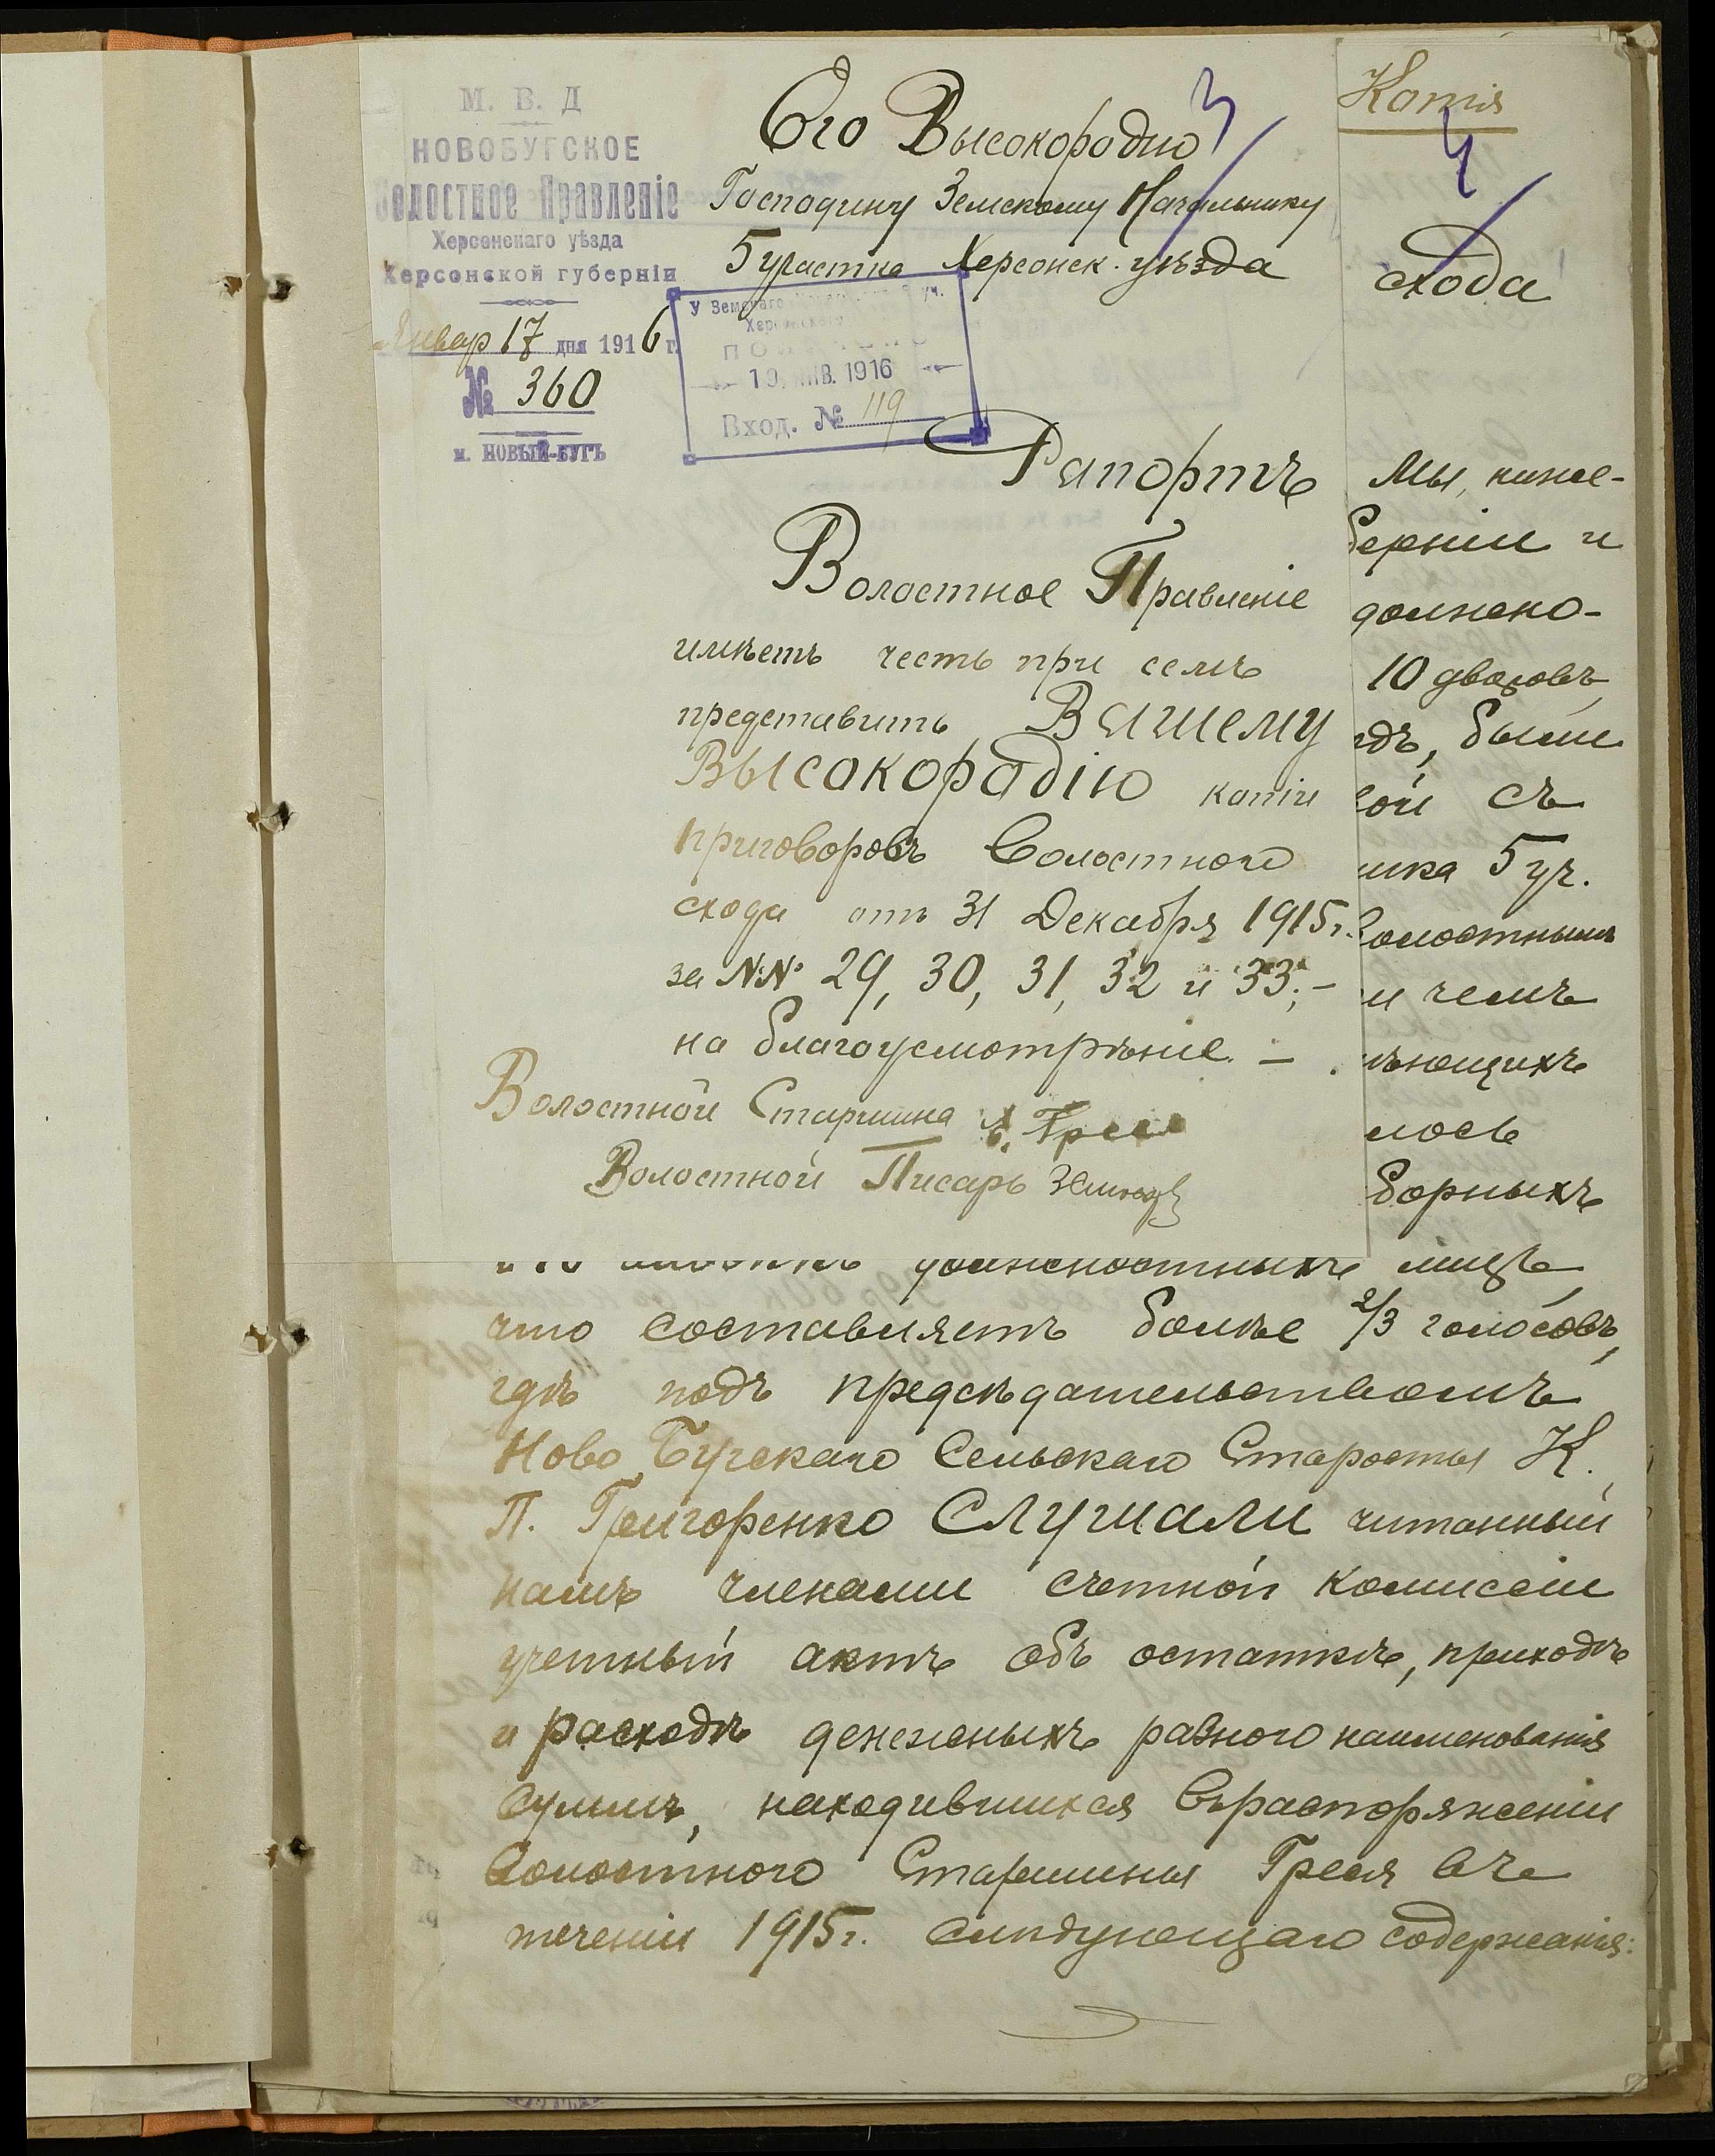 М. В. Д
НОВОБУГСКОЕ
Волостное Правленіе
Херсонскаго уѣзда
Херсонской губерніи
Январ 17 дня 1916 г.
№ 360
м. НОВЫЙ-БУГЪ
Его Высокородію
Господину Земскому Начальнику
5 участка Херсонск. уѣзда
3
У Земскаго
10 ЯНВ. 1916
Вход. № 119
Рапортъ
Волостное Правленіе
имѣетъ честь при семъ
представить Вашему
Высокородію копіи
приговоровъ Волостного
схода отъ 31 Декабря 1915 г.
за №№ 29, 30, 31, 32 и 33,-
на благоусмотрѣніе. —
Волостной Старшина Гресь
Волостной Писарь
Копія
4
схода
Мы, ниже-
берніи и
должно-
10 дворовъ,
одъ, были
вой съ
ика 5 уч.
Волостнымъ
и чемъ
ѣющихъ
лось
борныхъ
должностныхъ лицъ,
что составляетъ болѣе 2/3 голосовъ,
гдѣ подъ предсѣдательствомъ
Ново Бугскаго Сельскаго Старосты К.
П. Григоренко СЛУШАЛИ читанный
намъ членами счетной комиссіи
учетный актъ объ остаткѣ, приходѣ
и расходѣ денежныхъ разного наименованія
суммъ, находившихся въ распоряженіи
Волостного Старшины Греся въ
теченіи 1915 г. слѣдующаго содержанія: